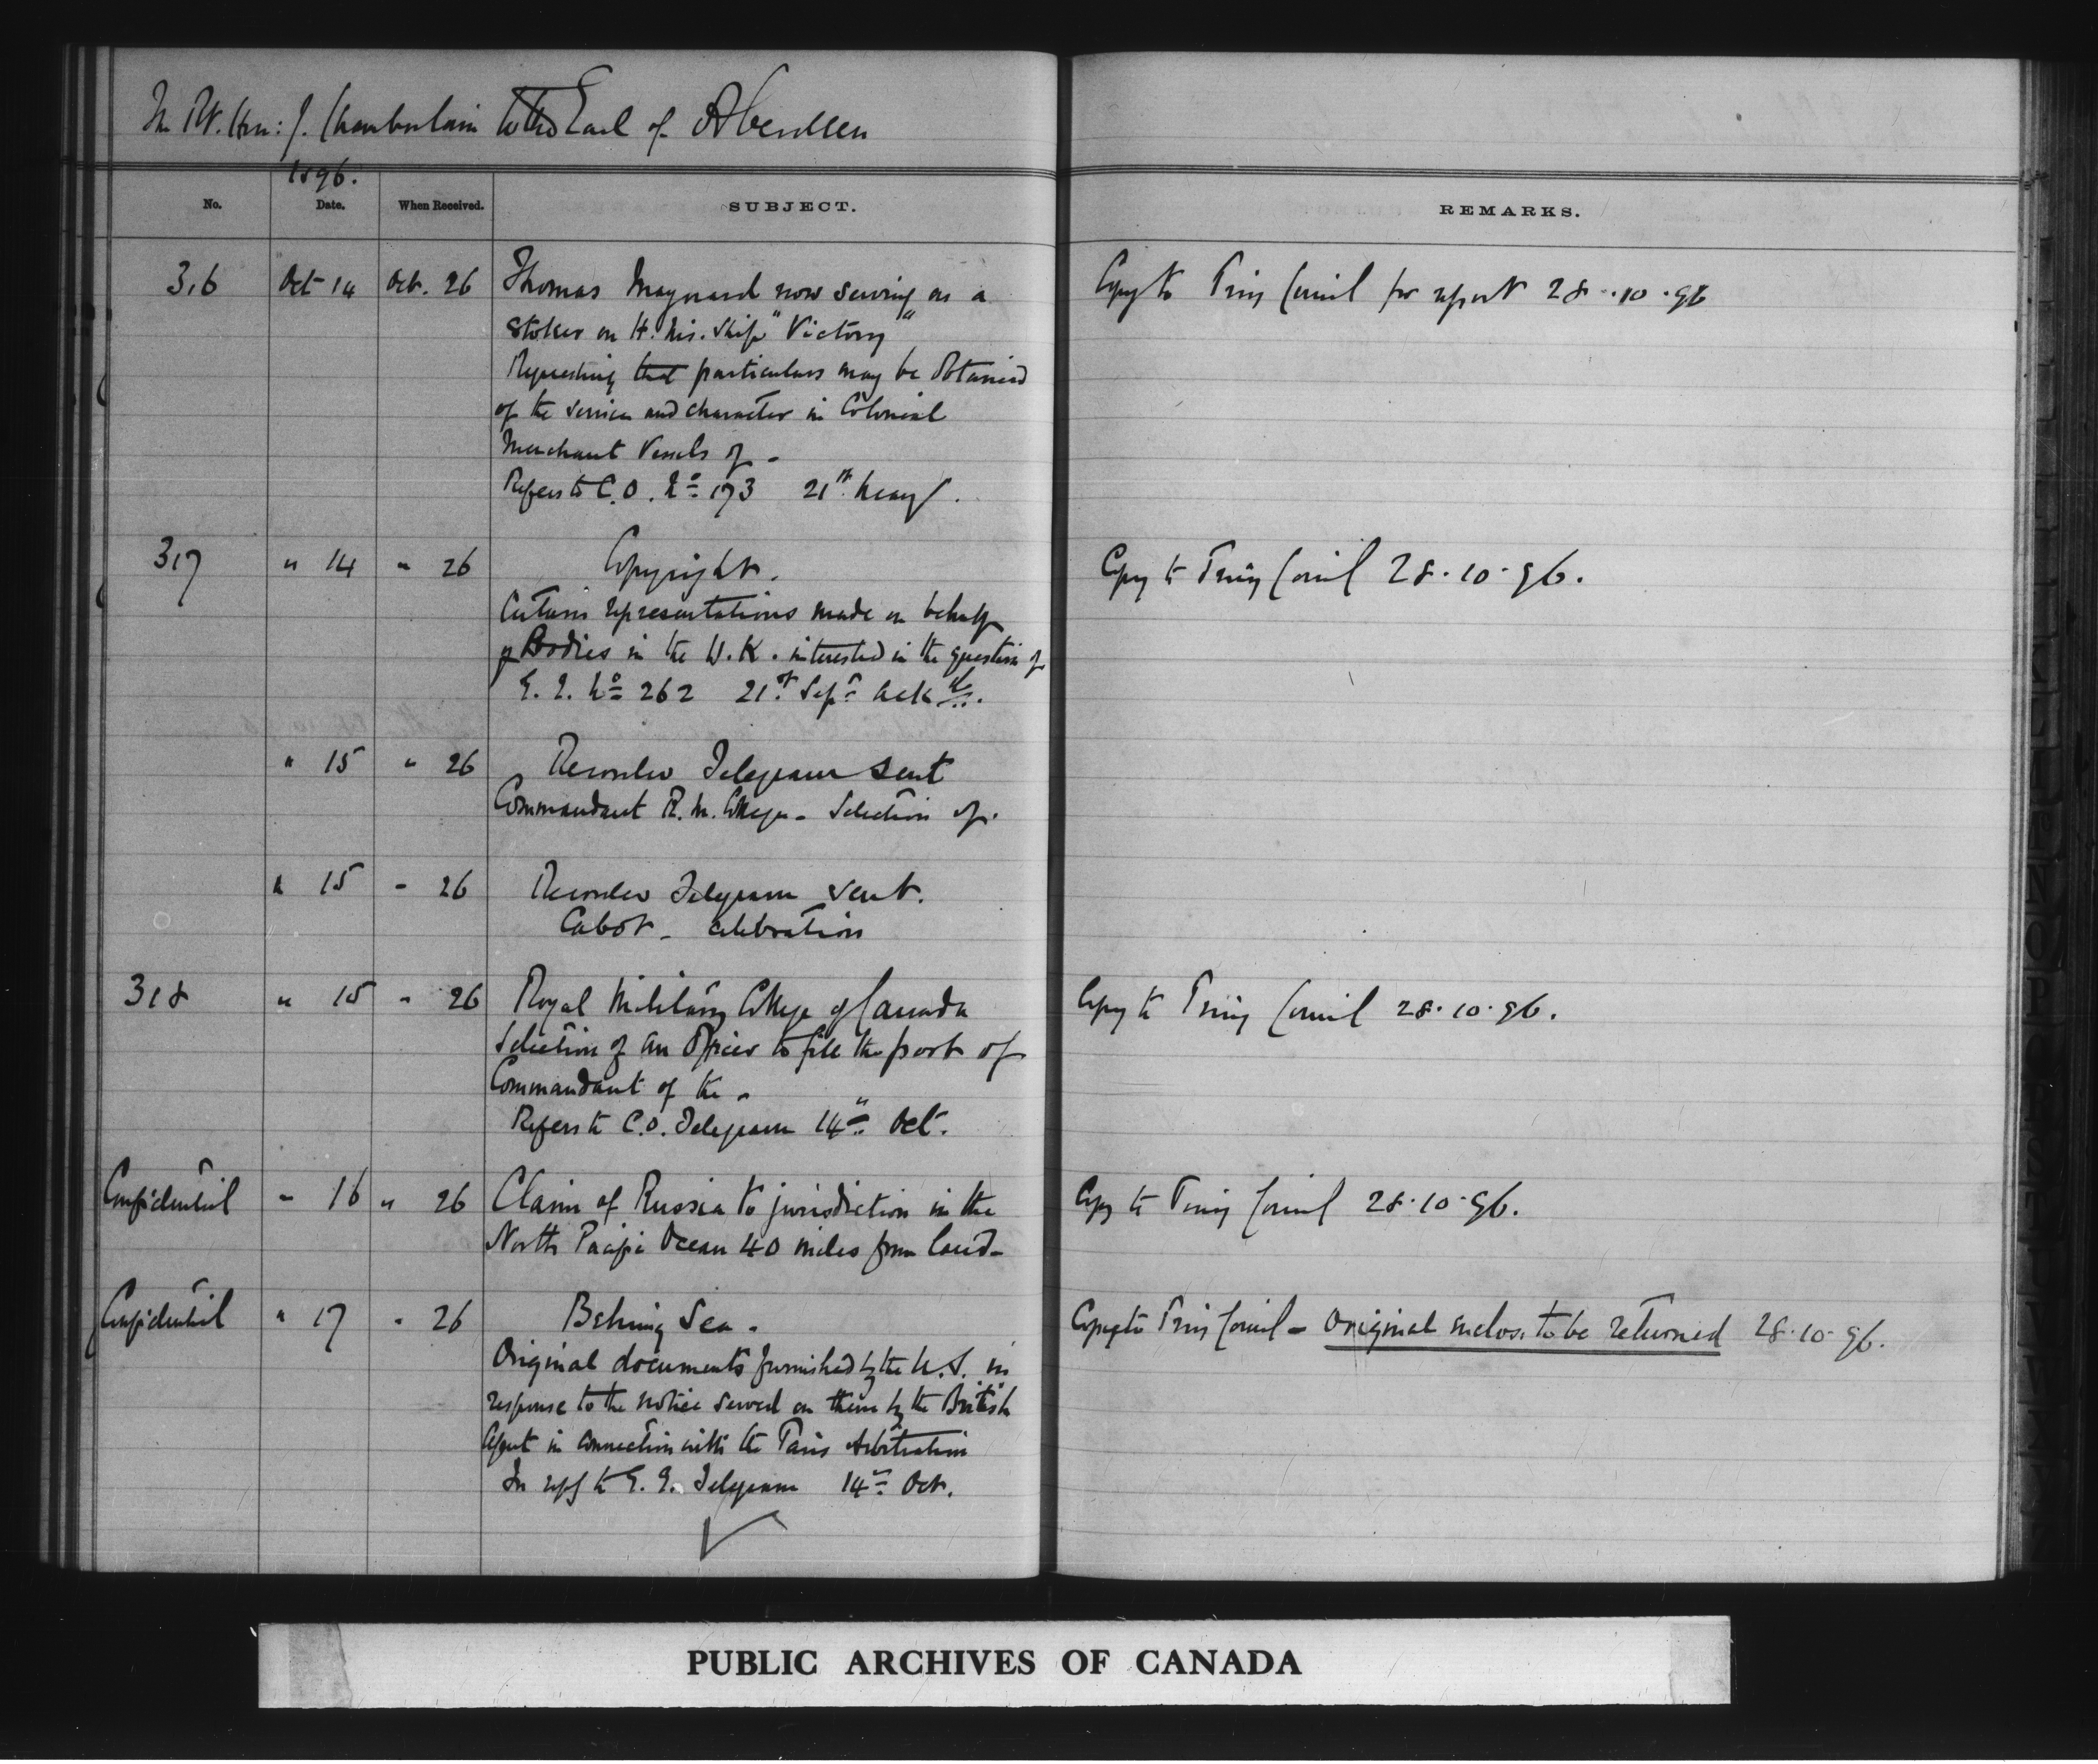 The Rt. Hon: J. Chamberlain to the Earl of Aberdeen
1896.
No. Date. When Received. SUBJECT. REMARKS.
316 Oct 14 Oct. 26 Thomas Maynard now serving as a Copy to Privy Council for report 28.10.96
Stoker on H. Mis. Ship "Victory"
Requesting that particulars may be obtained
of the service and character in Colonial
Merchant Vessels of -
Refers to C.O. No 173 21st May/.
317 " 14 " 26 Copyright. Copy to Privy Council 28.10.96.
Certain representations made on behalf
of Bodies in the U.K. interested in the question of
G. G. No 262 21st Sept Ackd.
" 15 " 26 Recorder Telegram sent
Commandant R. M. College - Selection of.
" 15 " 26 Recorder Telegram sent.
Cabot - celebration
318 " 15 " 26 Royal Military College of Canada Copy to Privy Council 28.10.96.
Selection of an Officer to fill the post of
Commandant of the -
Refers to C.O. Telegram 14th Oct.
Confidential " 16 " 26 Claim of Russia to jurisdiction in the Copy to Privy Council 28.10.96.
North Pacific Ocean 40 miles from land -
Confidential " 17 " 26 Behring Sea. Copy to Privy Council - Original enclos. to be returned 28.10.96.
Original documents furnished by the U.S. in
response to the notice served on them by the British
Agent in connection with the Paris Arbitration
In reply to G. G. Telegram 14th Oct.
PUBLIC ARCHIVES OF CANADA